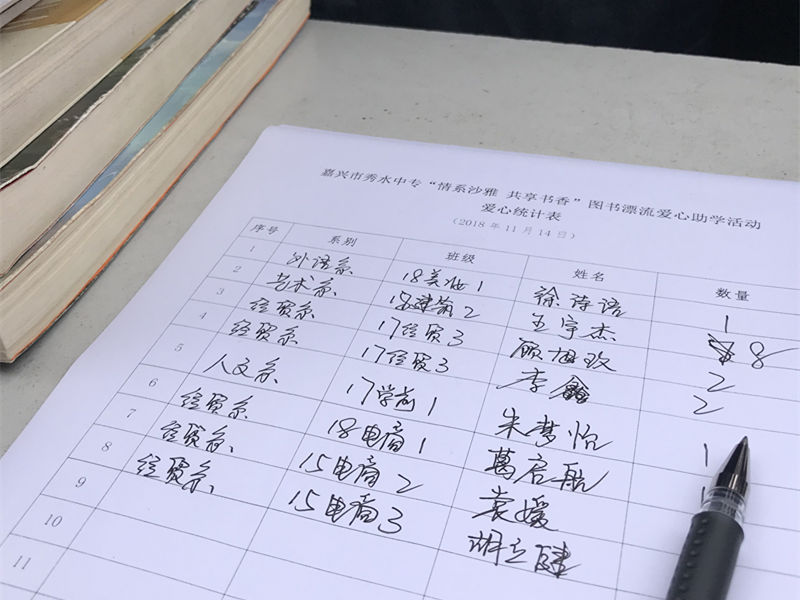 嘉兴市秀水中专“情系沙雅 共享书香”图书漂流爱心助学活动
爱心统计表
(2018 年 11 月 14 日)
序号 系别 班级 姓名 数量
1 外语系 18美妆1 徐诗语 1
2 艺术系 18建筑2 王宇杰 8
3 经贸系 17经贸3 顾 2
4 经贸系 17经贸3 李鑫 2
5 人文系 17学前1 朱梦怡 1
6 经贸系 18电商1 葛启航 1
7 经贸系 15电商2 袁媛
8 经贸系 15电商3 胡立
9
10
11